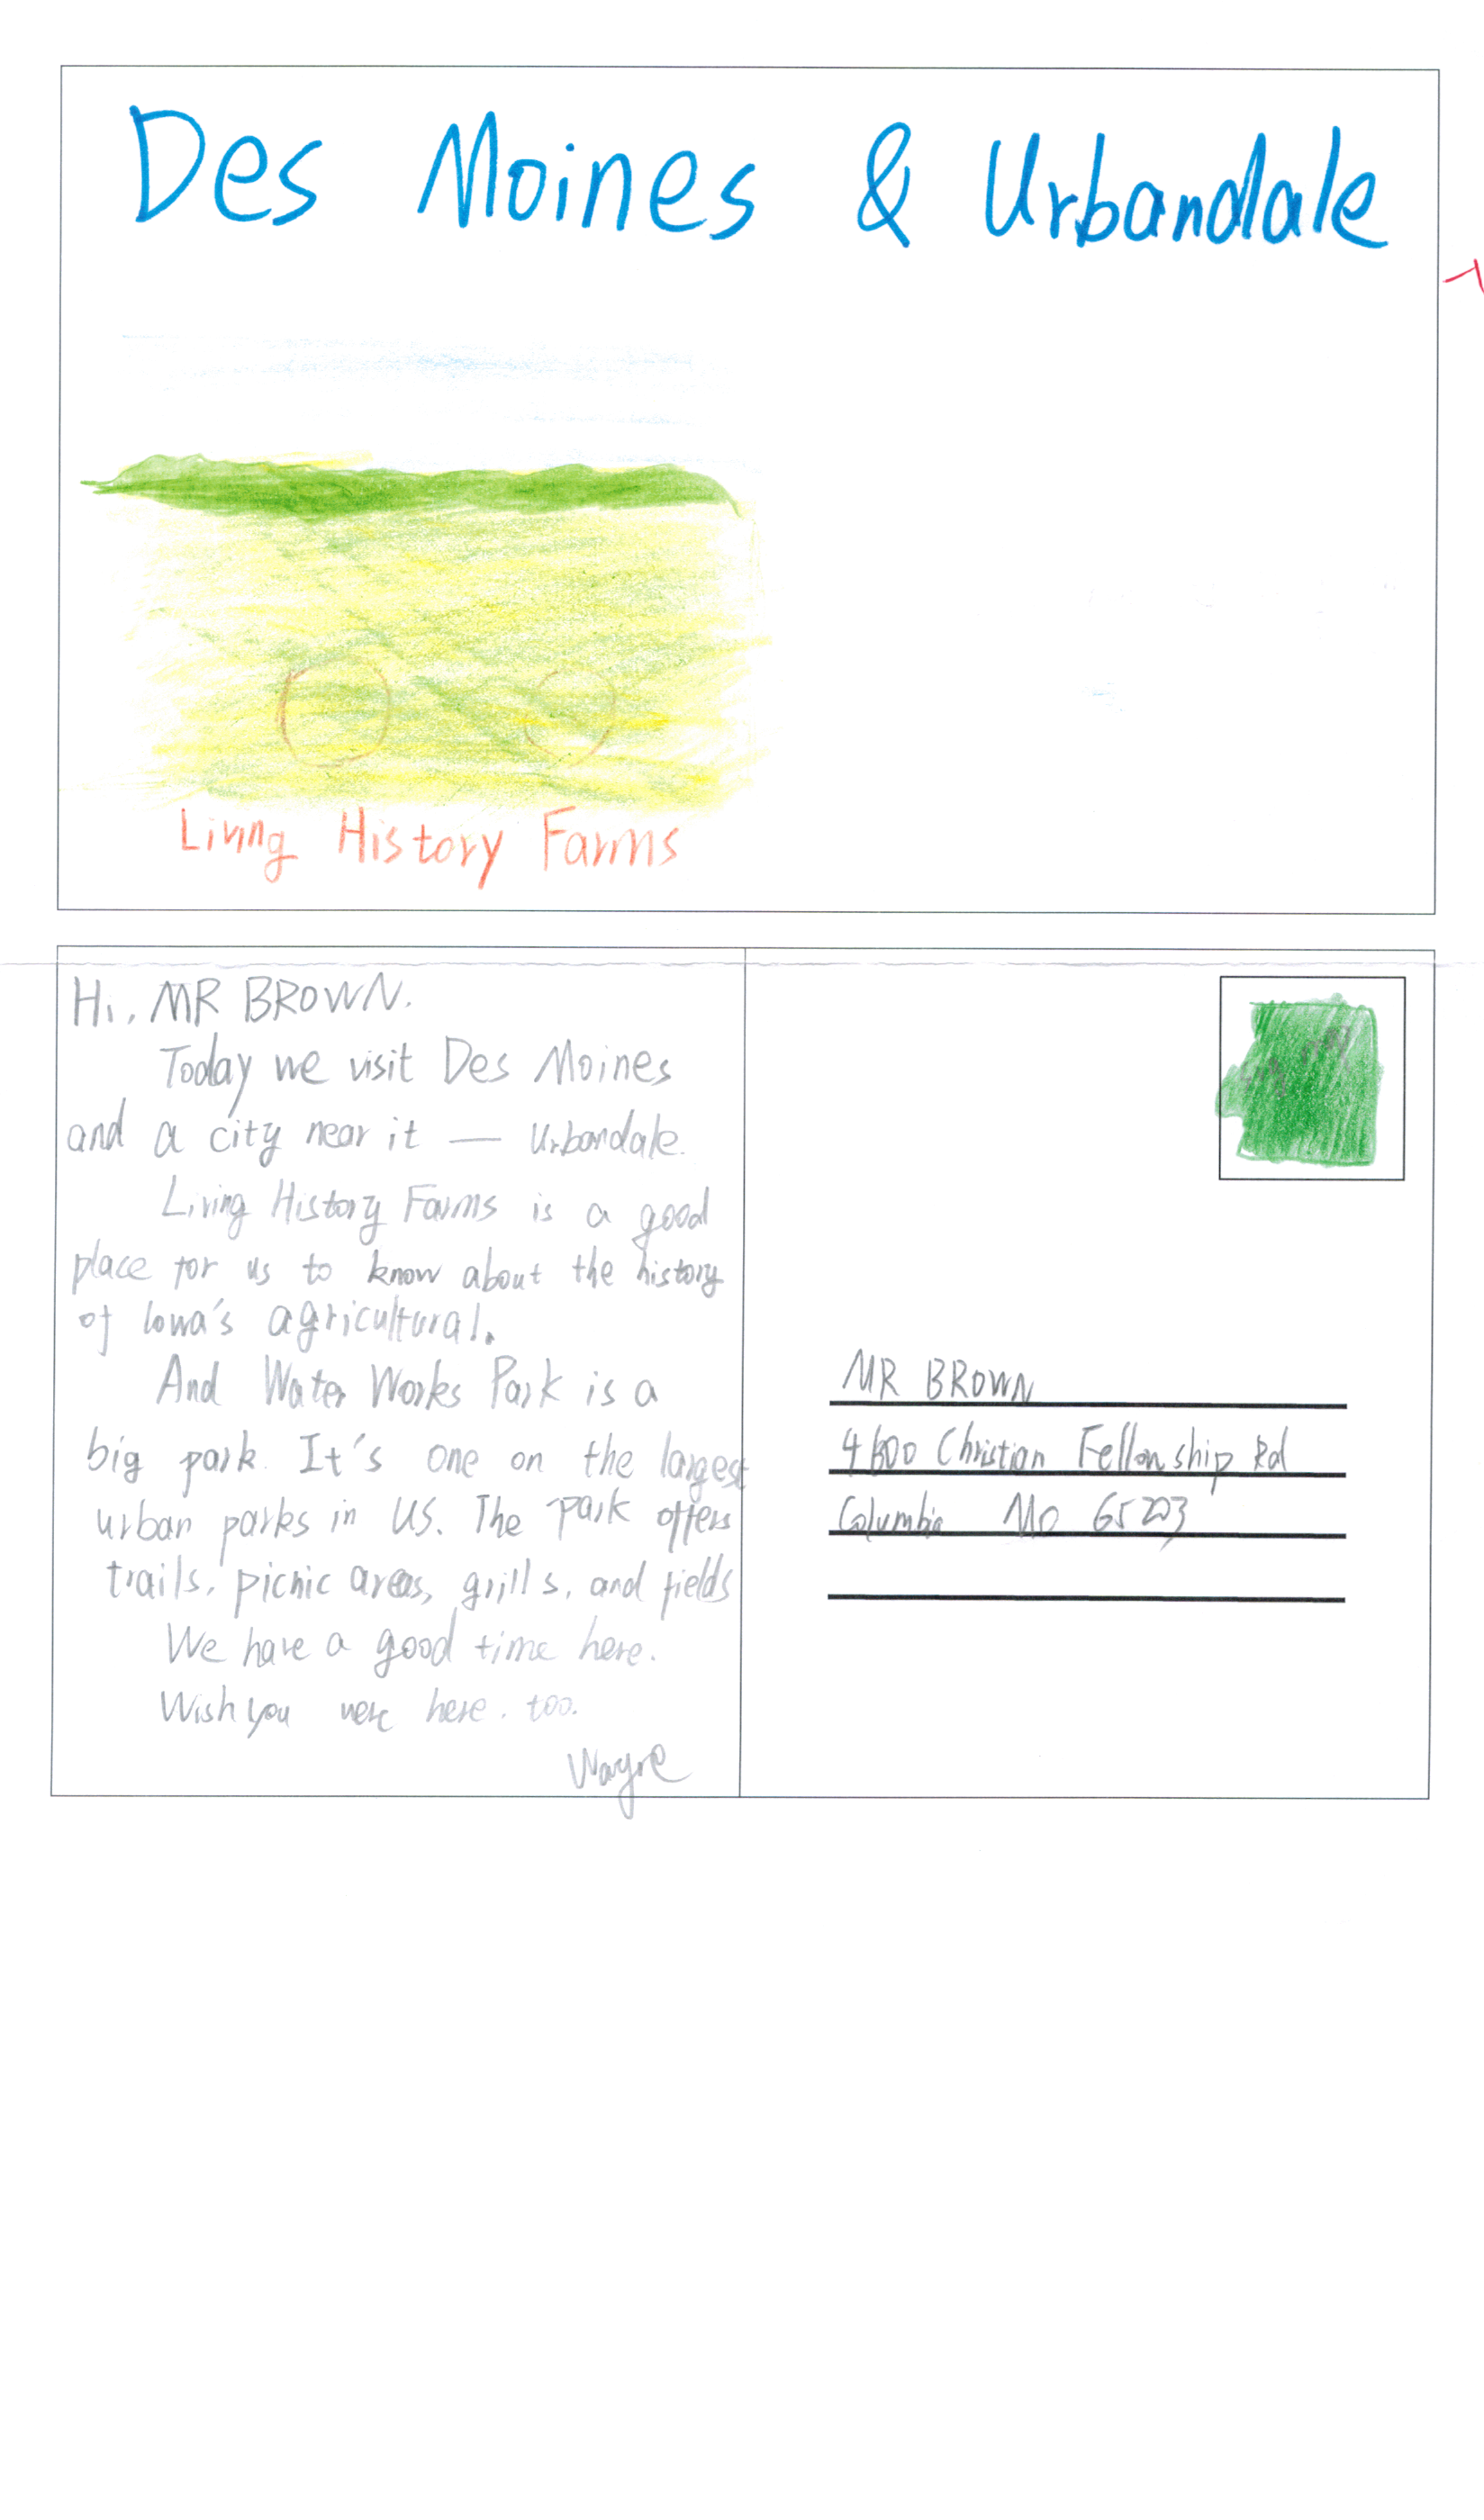 Des Moines & Urbandale
Living History Farms
Hi, MR BROWN.
Today we visit Des Moines
and a city near it — Urbandale.
Living History Farms is a good
place for us to know about the history
of Iowa's agricultural.
And Water Works Park is a
big park. It's one on the largest
urban parks in US. The park offers
trails, picnic areas, grills, and fields
We have a good time here.
Wish you were here. too.
Wayne
MR BROWN
4600 Christian Fellowship Rd
Columbia MO 65203